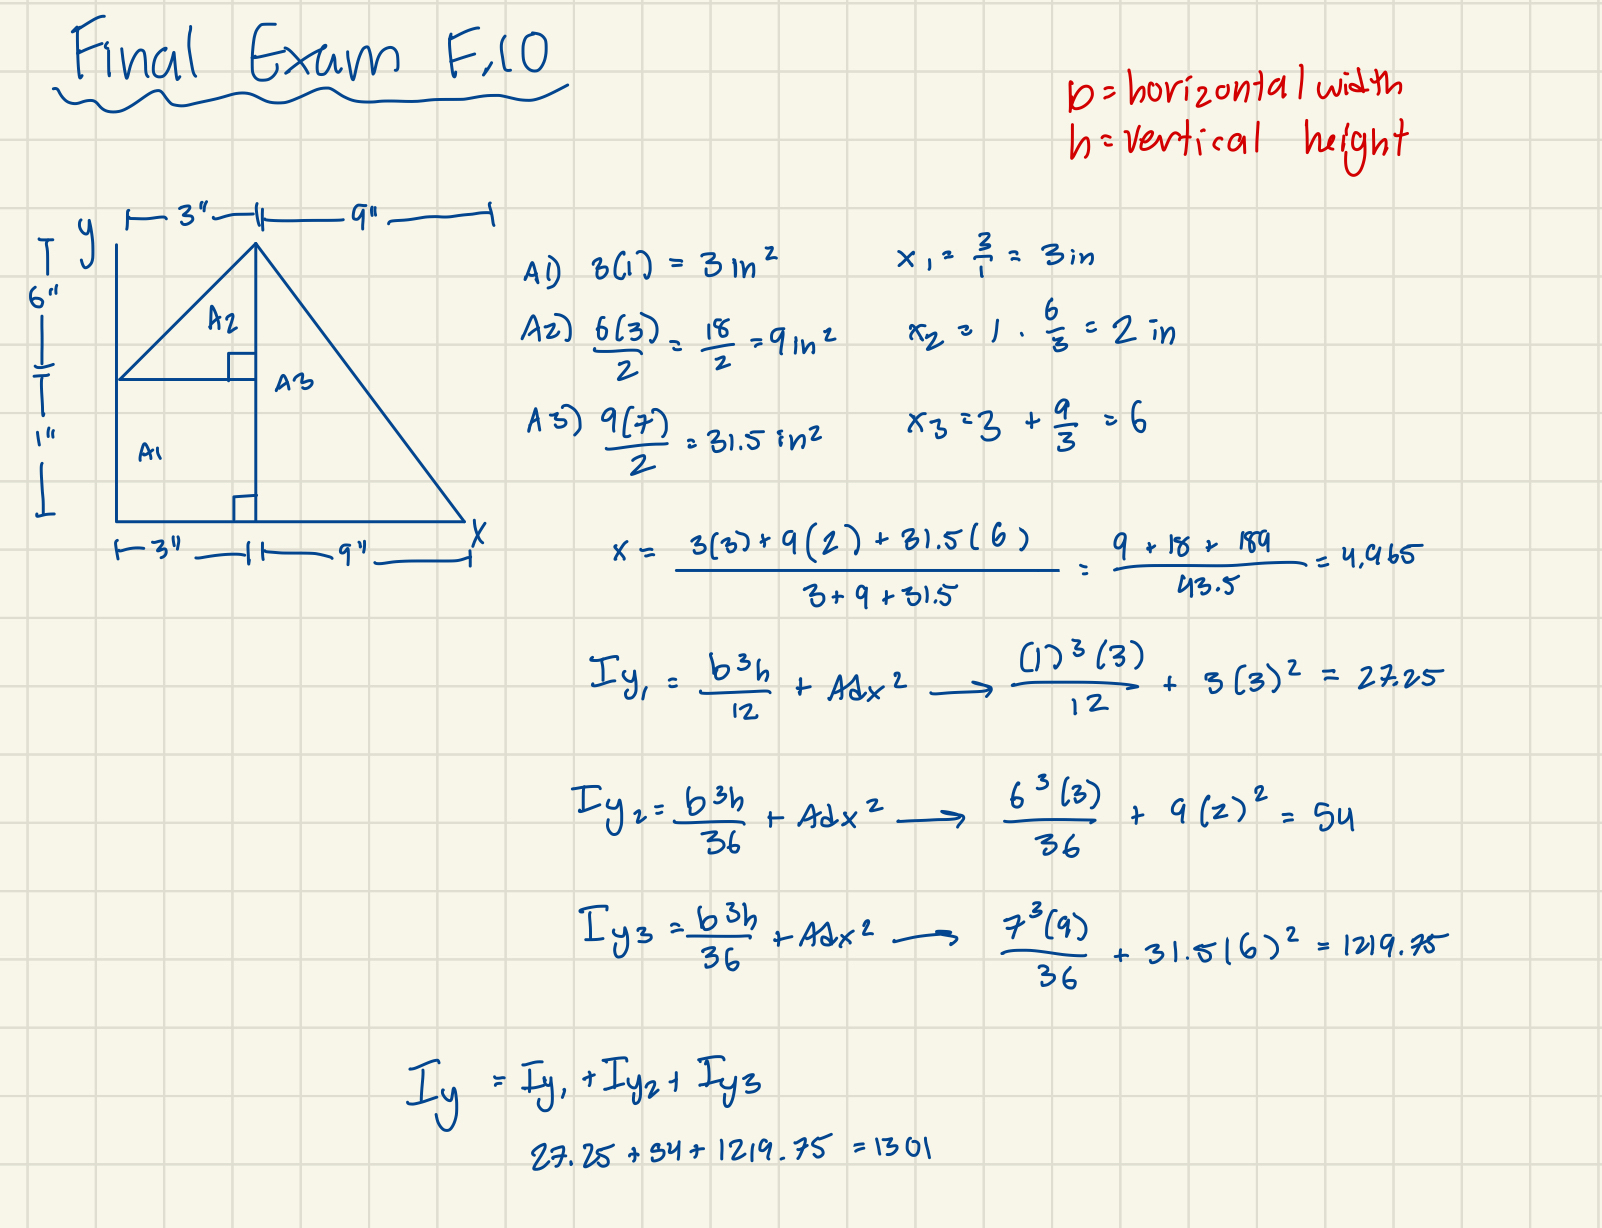 Final Exam F.10
b = horizontal width
h = vertical height
3" 9"
y
6"
1"
A2
A3
A1
x
3" 9"
A1) 3(1) = 3 in²
x₁ = 3/1 = 3 in
A2) 6(3)/2 = 18/2 = 9 in²
x₂ = 1 · 6/3 = 2 in
A3) 9(7)/2 = 31.5 in²
x₃ = 3 + 9/3 = 6
x = 3(3) + 9(2) + 31.5(6) / 3 + 9 + 31.5 = 9 + 18 + 189 / 43.5 = 4.965
Iy₁ = b³h/12 + Adx² → (1)³(3)/12 + 3(3)² = 27.25
Iy₂ = b³h/36 + Adx² → 6³(3)/36 + 9(2)² = 54
Iy₃ = b³h/36 + Adx² → 7³(9)/36 + 31.5(6)² = 1219.75
Iy = Iy₁ + Iy₂ + Iy₃
27.25 + 54 + 1219.75 = 1301